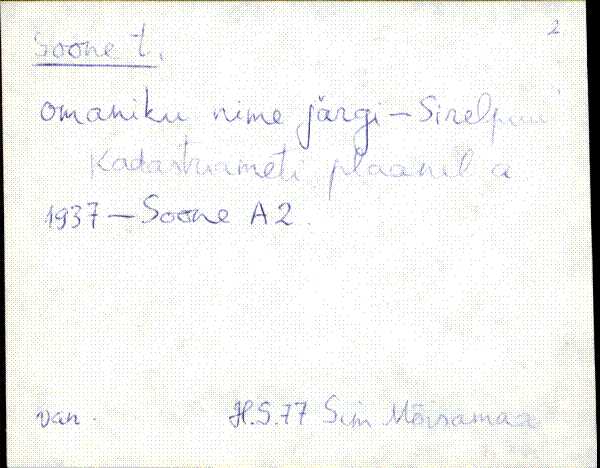 2
Soone t.
omaniku nime järgi – Sirelpuu
Kadastriameti plaanil a
1937 – Soone A2.
van.
H.S.77 Siim Mõisamaa